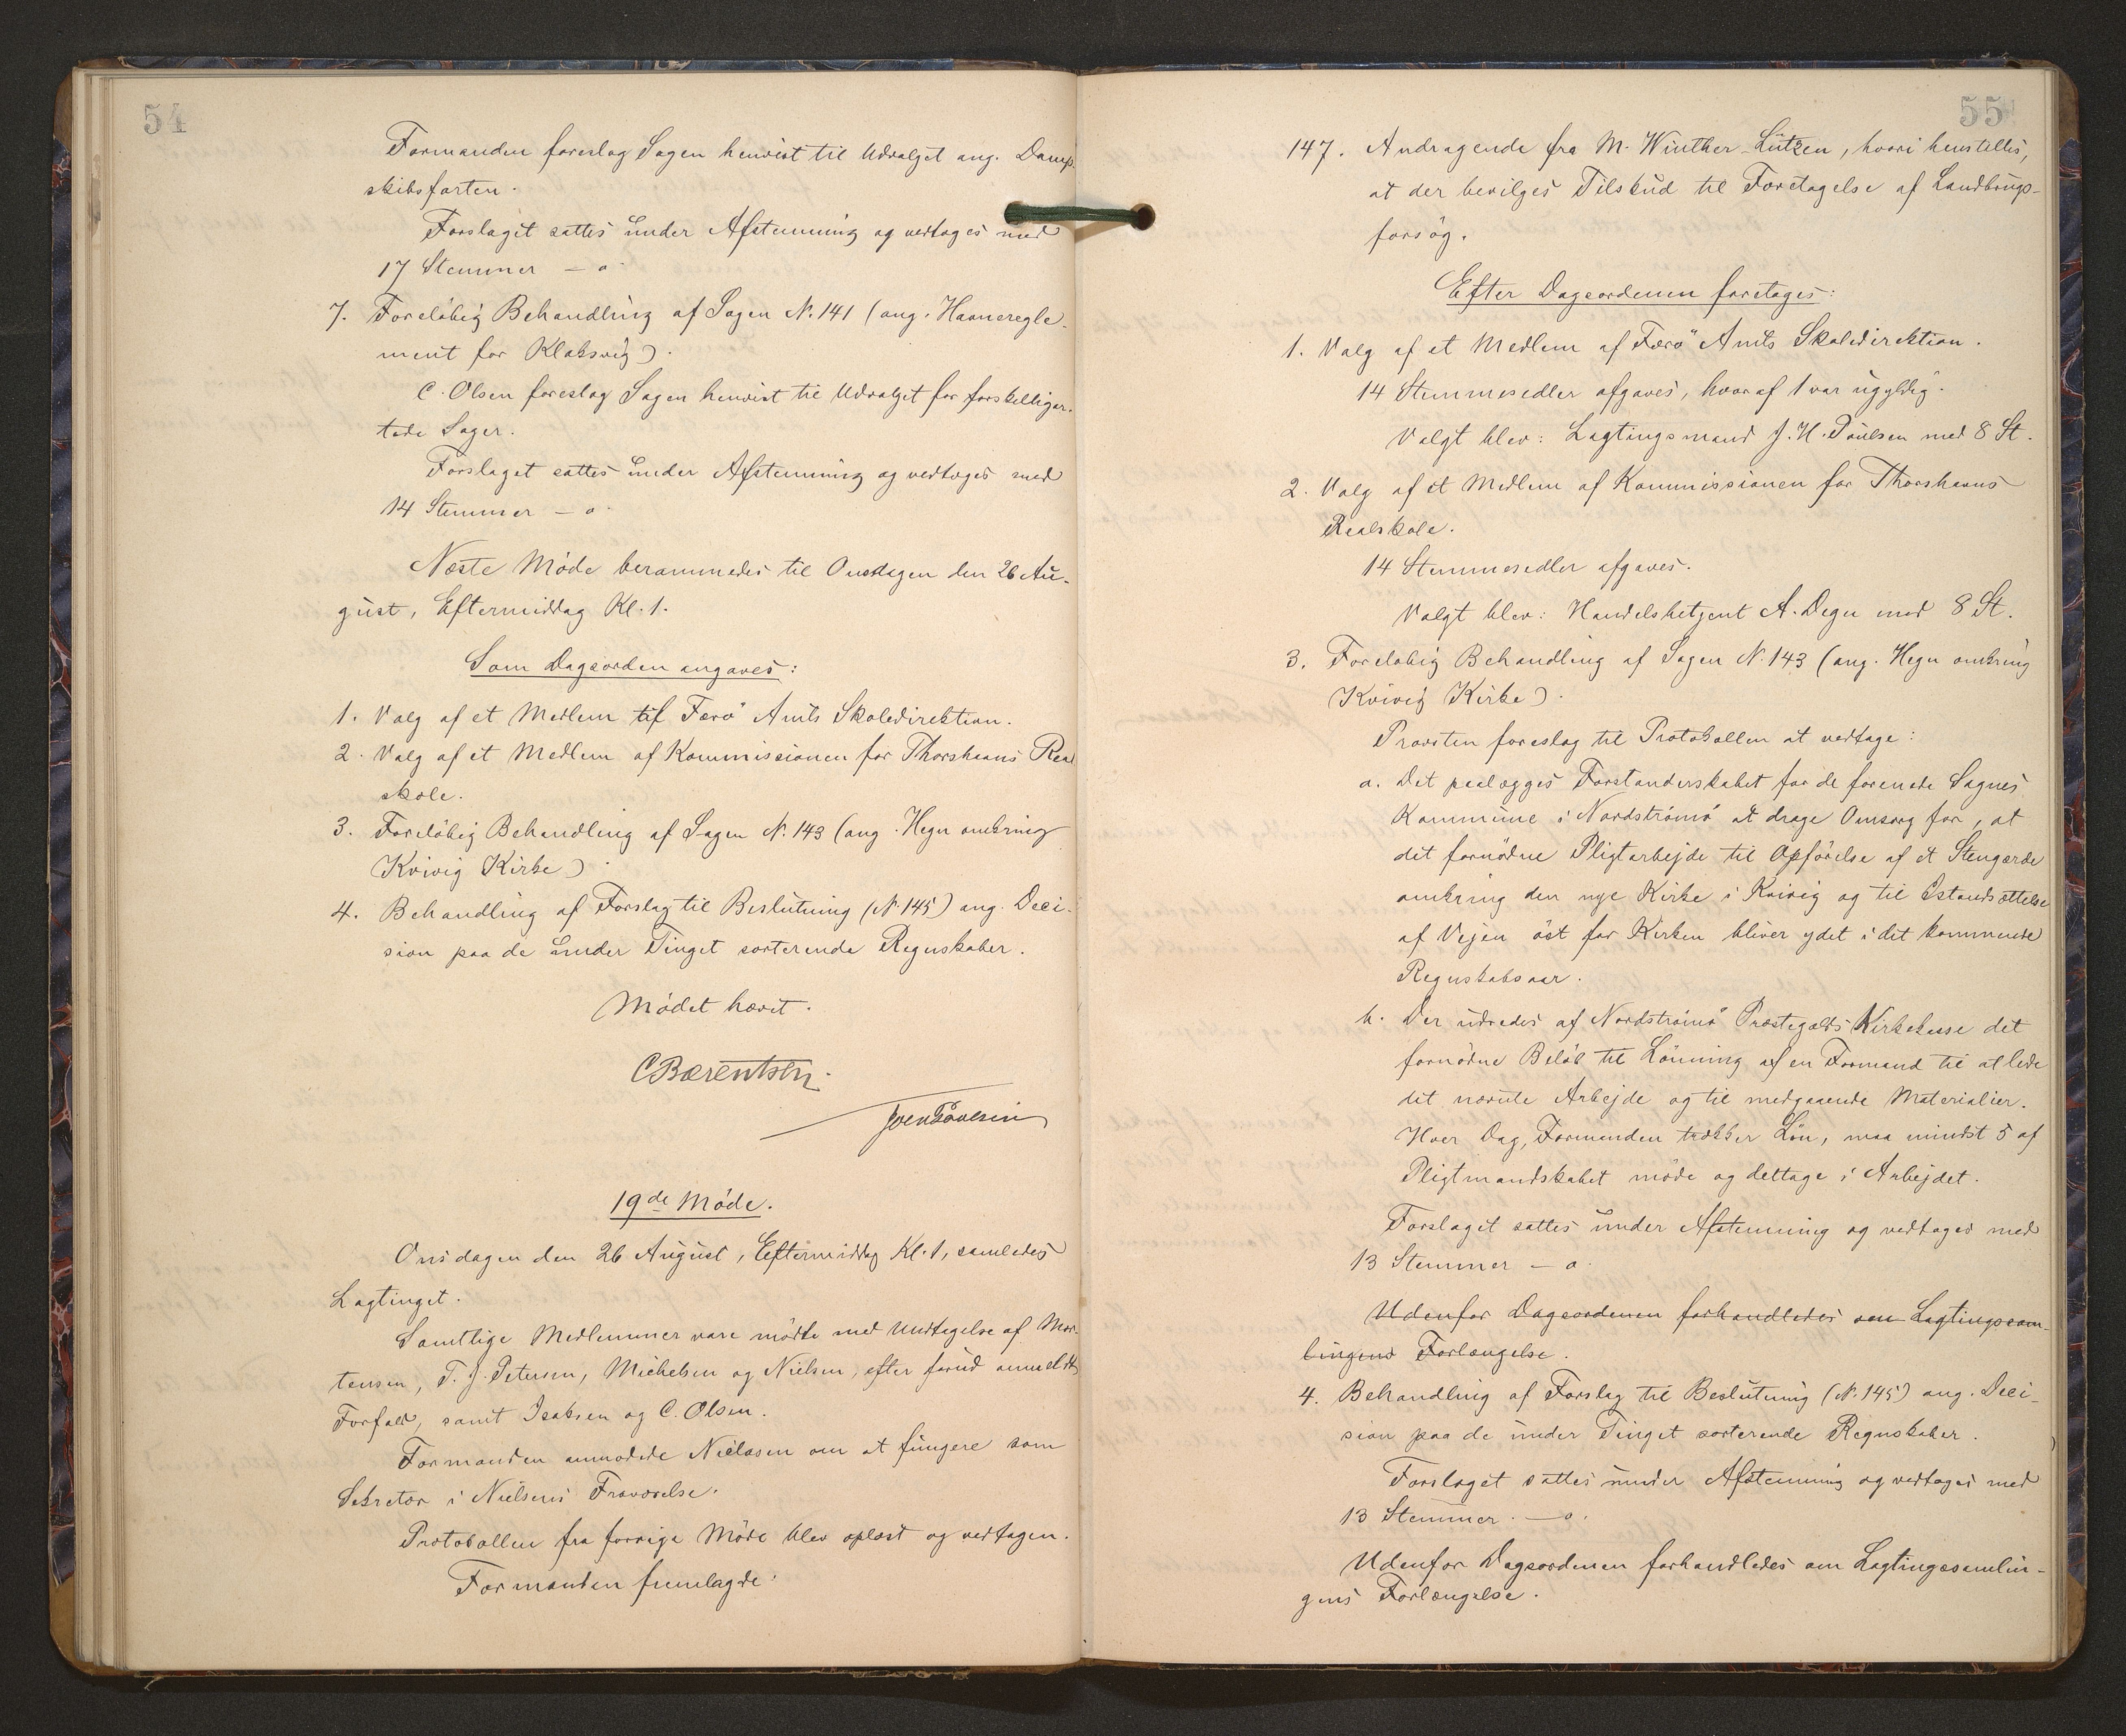 54
Formanden foreslog Sagen henvist til Udvalget ang. Damp-
skibsfarten.
Forslaget sattes under Afstemning og vedtoges med
17 Stemmer – o.
7. Foreløbig Behandling af Sagen N. 141 (ang. Havneregle-
ment for Klaksvig).
C. Olsen foreslog Sagen henvist til Udvalget for forskelligar-
tede Sager.
Forslaget sattes under Afstemning og vedtoges med
14 Stemmer – o.
Næste Møde berammedes til Onsdagen den 26 Au-
gust, Eftermiddag Kl. 1.
Som Dagsorden angaves:
1. Valg af et Medlem af Færø Amts Skoledirektion.
2. Valg af et Medlem af Kommissionen for Thorshavns Real
skole.
3. Foreløbig Behandling af Sagen N. 143 (ang. Hegn omkring
Kvivig Kirke).
4. Behandling af Forslag til Beslutning (N. 145) ang. Deci-
sion paa de under Tinget sorterende Regnskaber.
Mødet hævet.
C Bærentsen.
Joen Poulsen
19de Møde.
Onsdagen den 26 August, Eftermiddag Kl. 1, samledes
Lagtinget.
Samtlige Medlemmer vare mødte med Undtagelse af Mor-
tensen, T. J. Petersen, Michelsen og Nielsen, efter forud anmeldt
Forfald, samt Isaksen og C. Olsen.
Formanden anmodede Niclasen om at fungere som
Sekretær i Nielsens Fraværelse.
Protokollen fra forrige Møde blev oplæst og vedtagen.
Formanden fremlagde:
55
147. Andragende fra M. Winther-Lützen, hvori henstilles,
at der bevilges Tilskud til Foretagelse af Landbrugs-
forsøg.
Efter Dagsordenen foretoges:
1. Valg af et Medlem af Færø Amts Skoledirektion.
14 Stemmesedler afgaves, hvoraf 1 var ugyldig.
Valgt blev: Lagtingsmand J. H. Poulsen med 8 St.
2. Valg af et Medlem af Kommissionen for Thorshavns
Realskole.
14 Stemmesedler afgaves.
Valgt blev: Handelsbetjent A. Degn med 8 St.
3. Foreløbig Behandling af Sagen N. 143 (ang. Hegn omkring
Kvivig Kirke).
Provsten foreslog til Protokollen at vedtage:
a. Det paalægges Forstanderskabet for de forenede Sognes
Kommune i Nordstrømø at drage Omsorg for, at
det fornødne Pligtarbejde til Opførelse af et Stengærde
omkring den nye Kirke i Kvivig og til Istandsættelse
af Vejen øst for Kirken bliver ydet i det kommende
Regnskabsaar.
b. Der udredes af Nordstrømø Præstegælds Kirkekasse det
fornødne Beløb til Lønning af en Formand til at lede
det nævnte Arbejde og til medgaaende Materialier.
Hver Dag, Formanden trækker Løn, maa mindst 5 af
Pligtmandskabet møde og deltage i Arbejdet.
Forslaget sattes under Afstemning og vedtoges med
13 Stemmer – o.
Udenfor Dagsordenen forhandledes om Lagtingssam-
lingens Forlængelse.
4. Behandling af Forslag til Beslutning (N. 145) ang. Deci-
sion paa de under Tinget sorterende Regnskaber.
Forslaget sattes under Afstemning og vedtoges med
13 Stemmer. – o.
Udenfor Dagsordenen forhandledes om Lagtingssamlin-
gens Forlængelse.